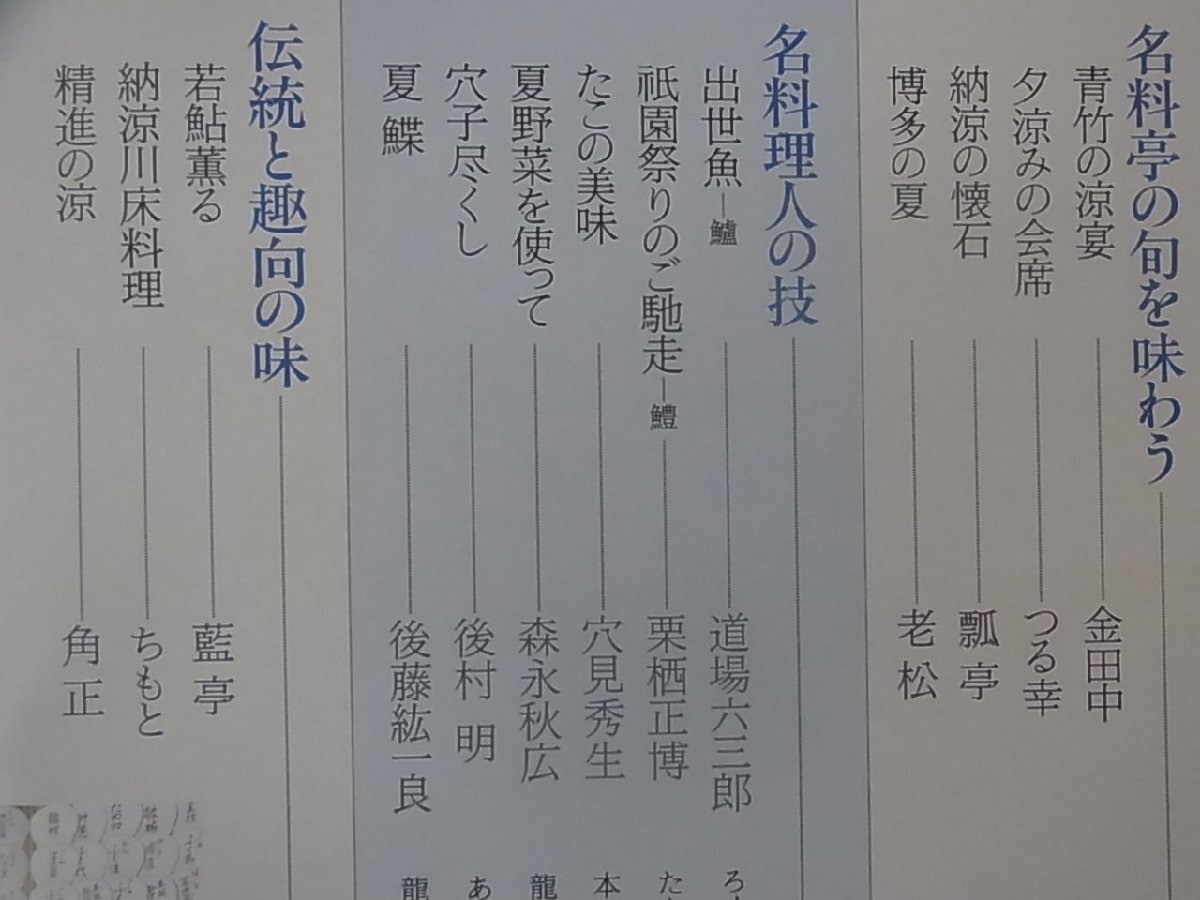 名料亭の旬を味わう
青竹の涼宴 金田中
夕涼みの会席 つる幸
納涼の懐石 瓢亭
博多の夏 老松
名料理人の技
出世魚―鱸 道場六三郎 ろ
祇園祭りのご馳走―鱧 栗栖正博 た
たこの美味 穴見秀生 本
夏野菜を使って 森永秋広 龍
穴子尽くし 後村明 あ
夏鰈 後藤紘一良 龍
伝統と趣向の味
若鮎薫る 藍亭
納涼川床料理 ちもと
精進の涼 角正